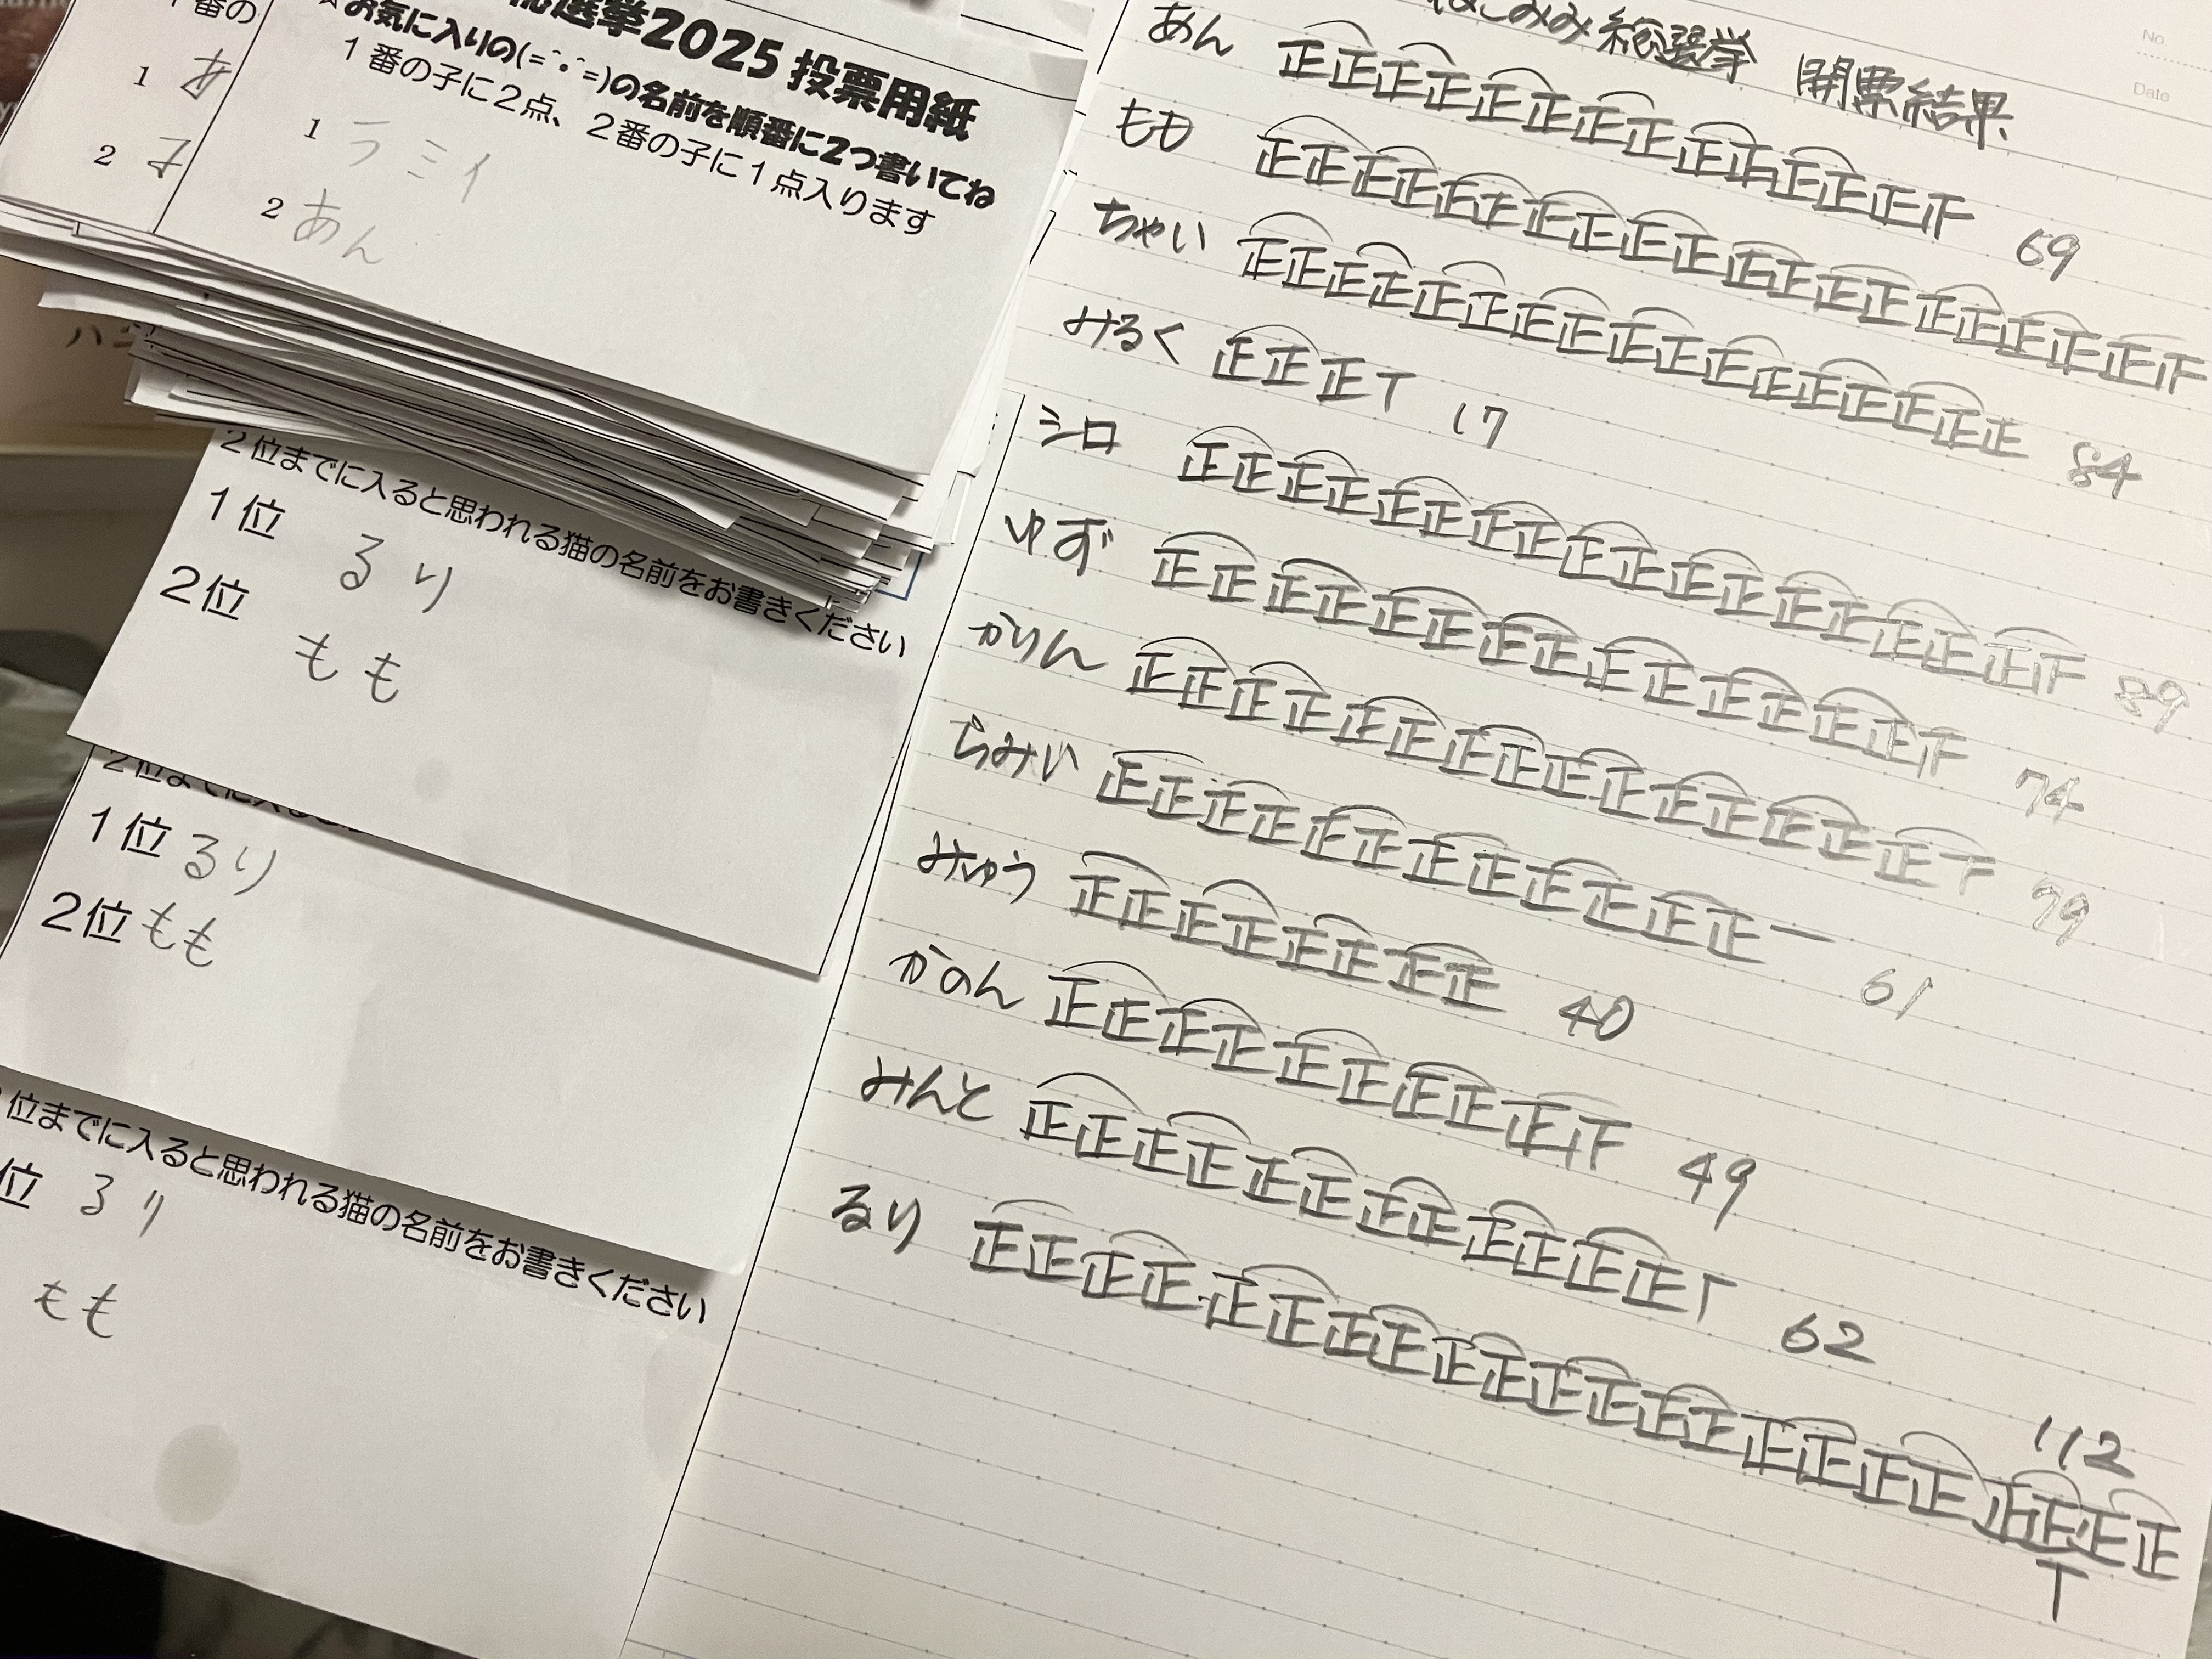 総選挙2025 投票用紙
お気に入りの(=^・^=)の名前を順番に2つ書いてね
1番の子に2点、2番の子に1点入ります
1 ラミイ
2 あん
番の
1 あ
2
2位までに入ると思われる猫の名前をお書きください
1位 るり
2位 もも
1位 るり
2位 もも
位までに入ると思われる猫の名前をお書きください
位 るり
もも
No.
Date
ねこみみ総選挙 開票結果
あん 正正正正正正正正正正正正正下 69
もも 正正正正正正正正正正正正正正正正正正正下
ちゃい 正正正正正正正正正正正正正正正正正 84
みるく 正正正T 17
シロ 正正正正正正正正正正正正正正正正正下 89
ゆず 正正正正正正正正正正正正正正下 74
かりん 正正正正正正正正正正正正正正正下 79
らみい 正正正正正正正正正正正正一 61
みゅう 正正正正正正正正 40
かのん 正正正正正正正正正下 49
みんと 正正正正正正正正正正正正T 62
るり 正正正正正正正正正正正正正正正正正正正正正正 112
T